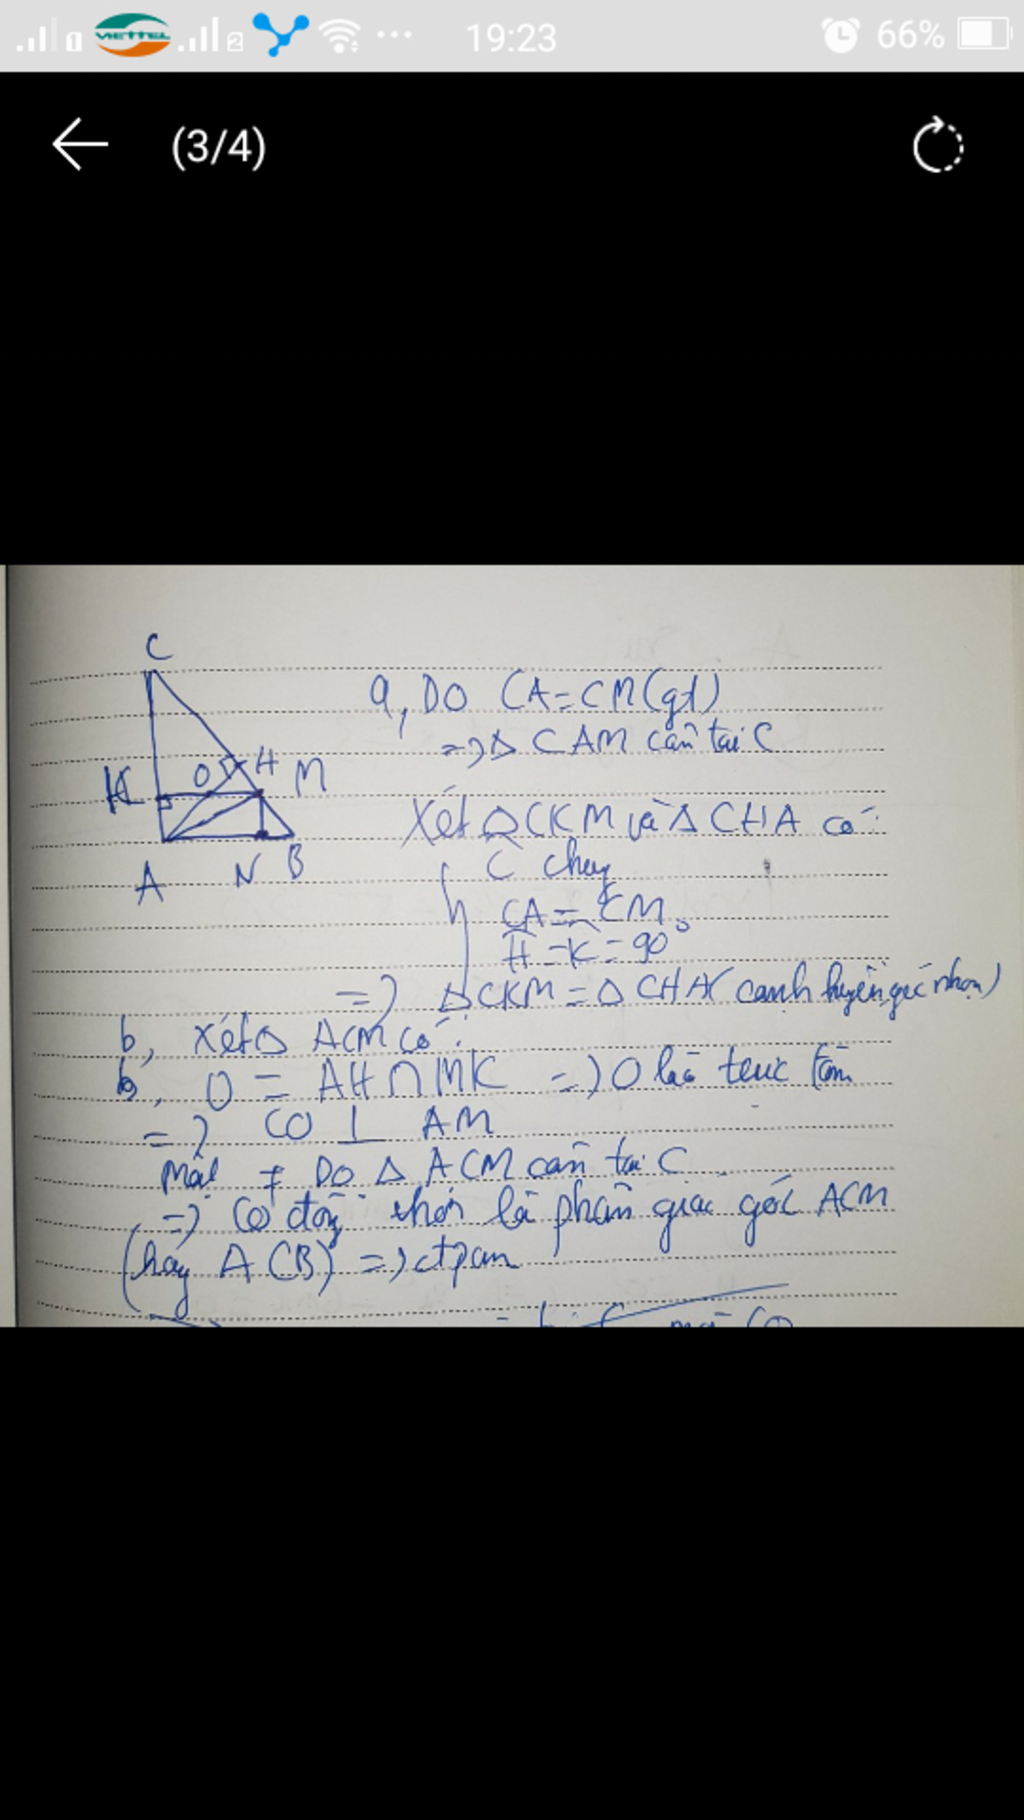 1 VIETTEL 2 19:23 66%
(3/4)
C
a, Do CA = CM (gt)
=> Δ CAM cân tại C
K O H M
Xét Δ CKM và Δ CHA có:
A N B
C chung
CA = CM
H = K = 90°
=> Δ CKM = Δ CHA (cạnh huyền góc nhọn)
b, Xét Δ ACM có:
b, O = AH ∩ MK => O là trực tâm
=> CO ⊥ AM
Mặt ≠ Do Δ ACM cân tại C
=> CO đồng thời là phân giác góc ACM
(hay ACB) => đtpcm